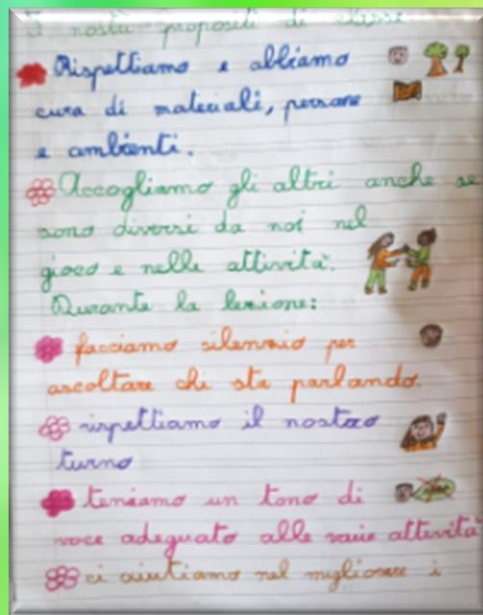 I nostri propositi di classe
Rispettiamo e abbiamo
cura di materiali, persone
e ambienti.
Accogliamo gli altri anche se
sono diversi da noi nel
gioco e nelle attività.
Durante la lezione:
facciamo silenzio per
ascoltare chi sta parlando.
rispettiamo il nostro
turno
teniamo un tono di
voce adeguato alle varie attività
ci aiutiamo nel migliorare i